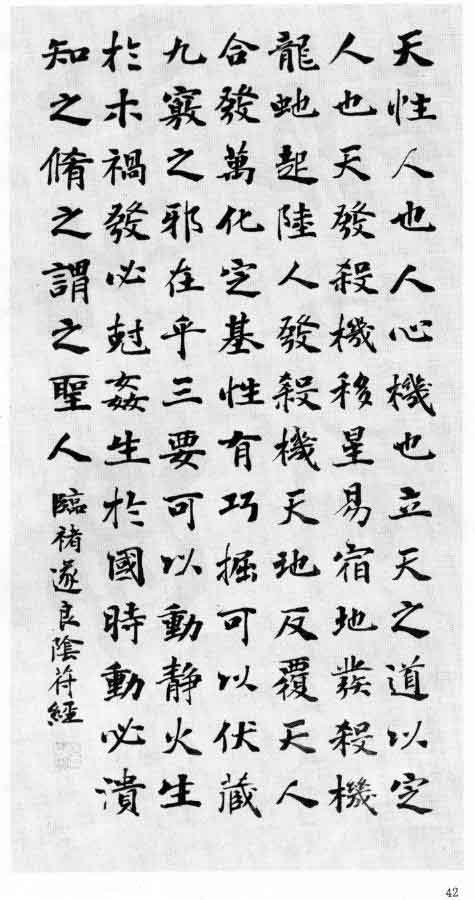 天性人也人心機也立天之道以定
人也天發殺機移星易宿地發殺機
龍虵起陸人發殺機天地反覆天人
合發萬化定基性有巧掘可以伏藏
九竅之邪在乎三要可以動靜火生
於木禍發必尅姦生於國時動必潰
知之脩之謂之聖人 臨褚遂良陰符經
42